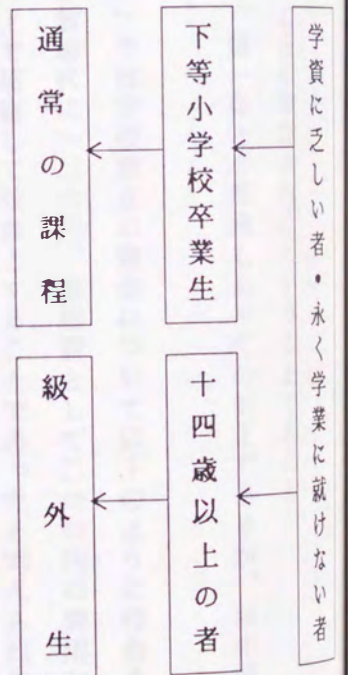 学資に乏しい者・永く学業に就けない者
下等小学校卒業生
十四歳以上の者
通常の課程
級外生